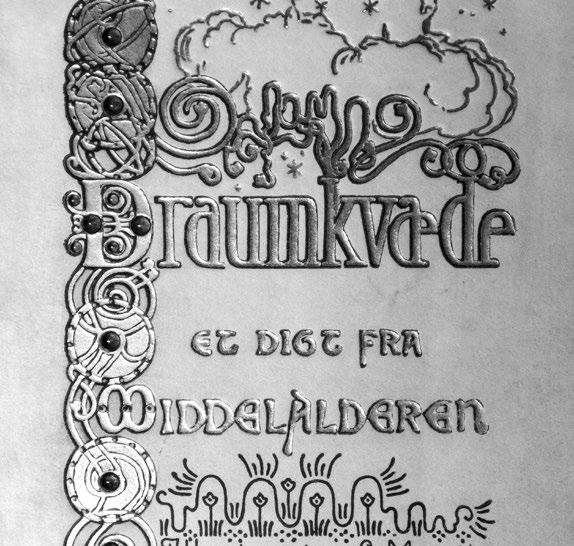 Draumkvæde
ET DIGT FRA
MIDDELALDEREN